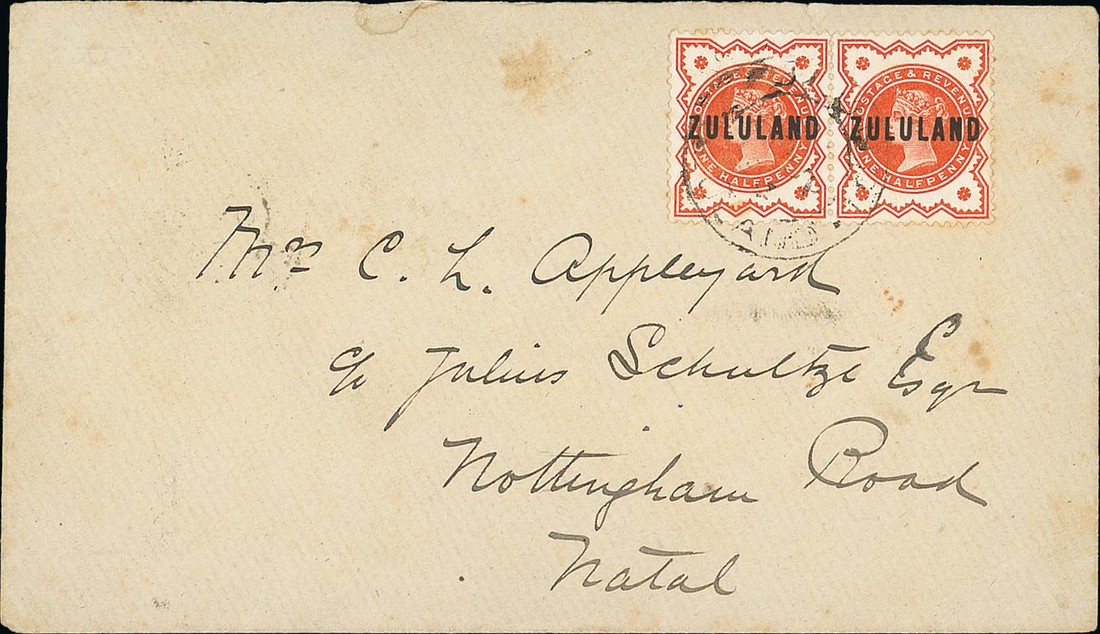 POSTAGE & REVENUE
ZULULAND
ONE HALFPENNY
POSTAGE & REVENUE
ZULULAND
ONE HALFPENNY
Mrs C. L. Appleyard
c/o Julius Schultze Esqr
Nottingham Road
Natal